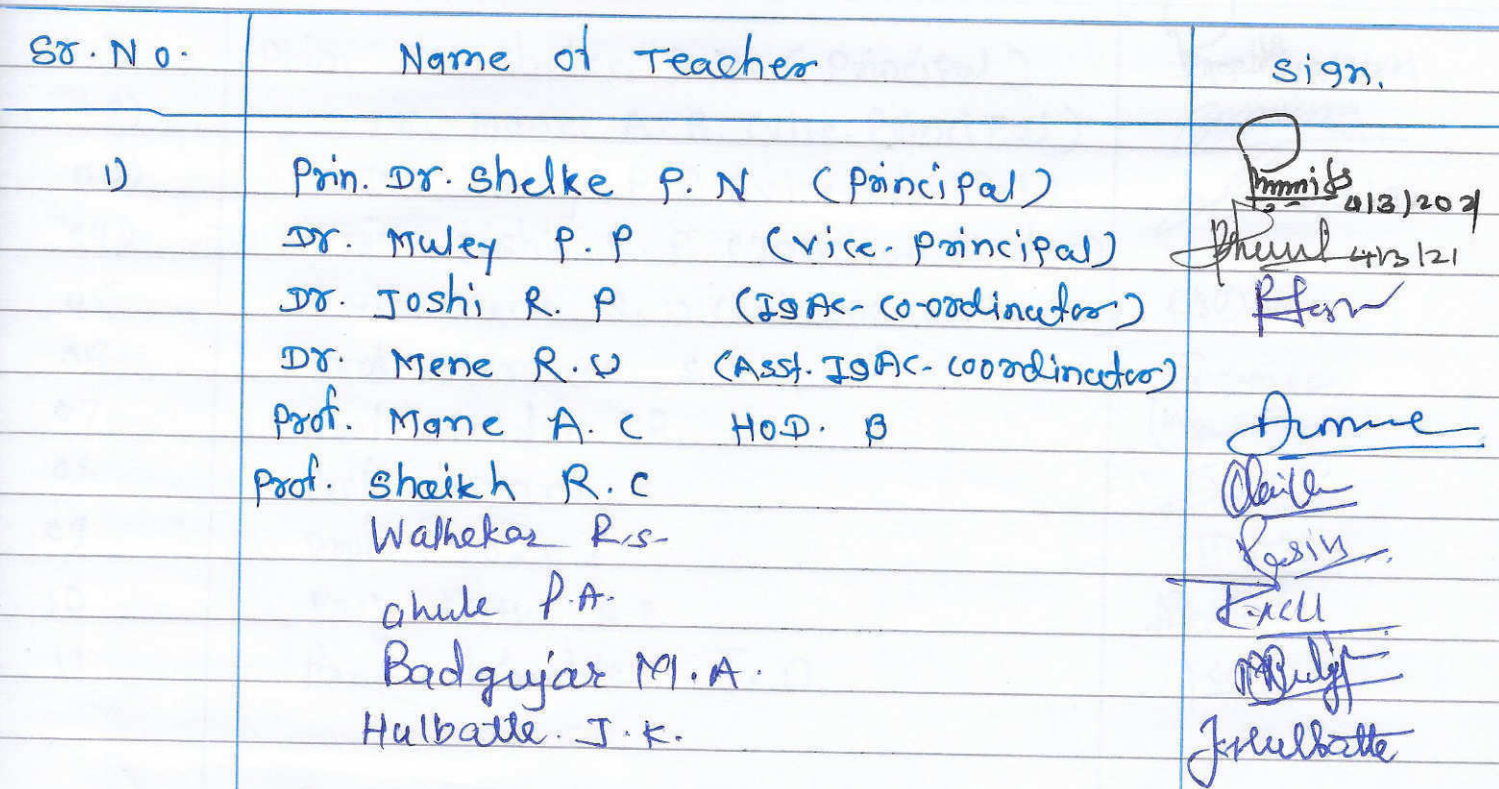 Sr. No. Name of Teacher Sign.
1) Prin. Dr. Shelke P. N (Principal) 4/3/2021
Dr. Muley P. P (Vice. Principal) 4/3/21
Dr. Joshi R. P (IQAC- Co-ordinator)
Dr. Mene R. U (Asst. IQAC- Coordinator)
Prof. Mane A. C HOD. B
Prof. Shaikh R. C
Walhekar R.S.
Ghule P.A.
Badgujar M. A.
Hulbatte. J. K. J.K.Hulbatte